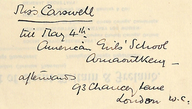 Miss Carswell
till May 4th.
American Girls' School
afterwards
93 Chancery Lane
London W.C.